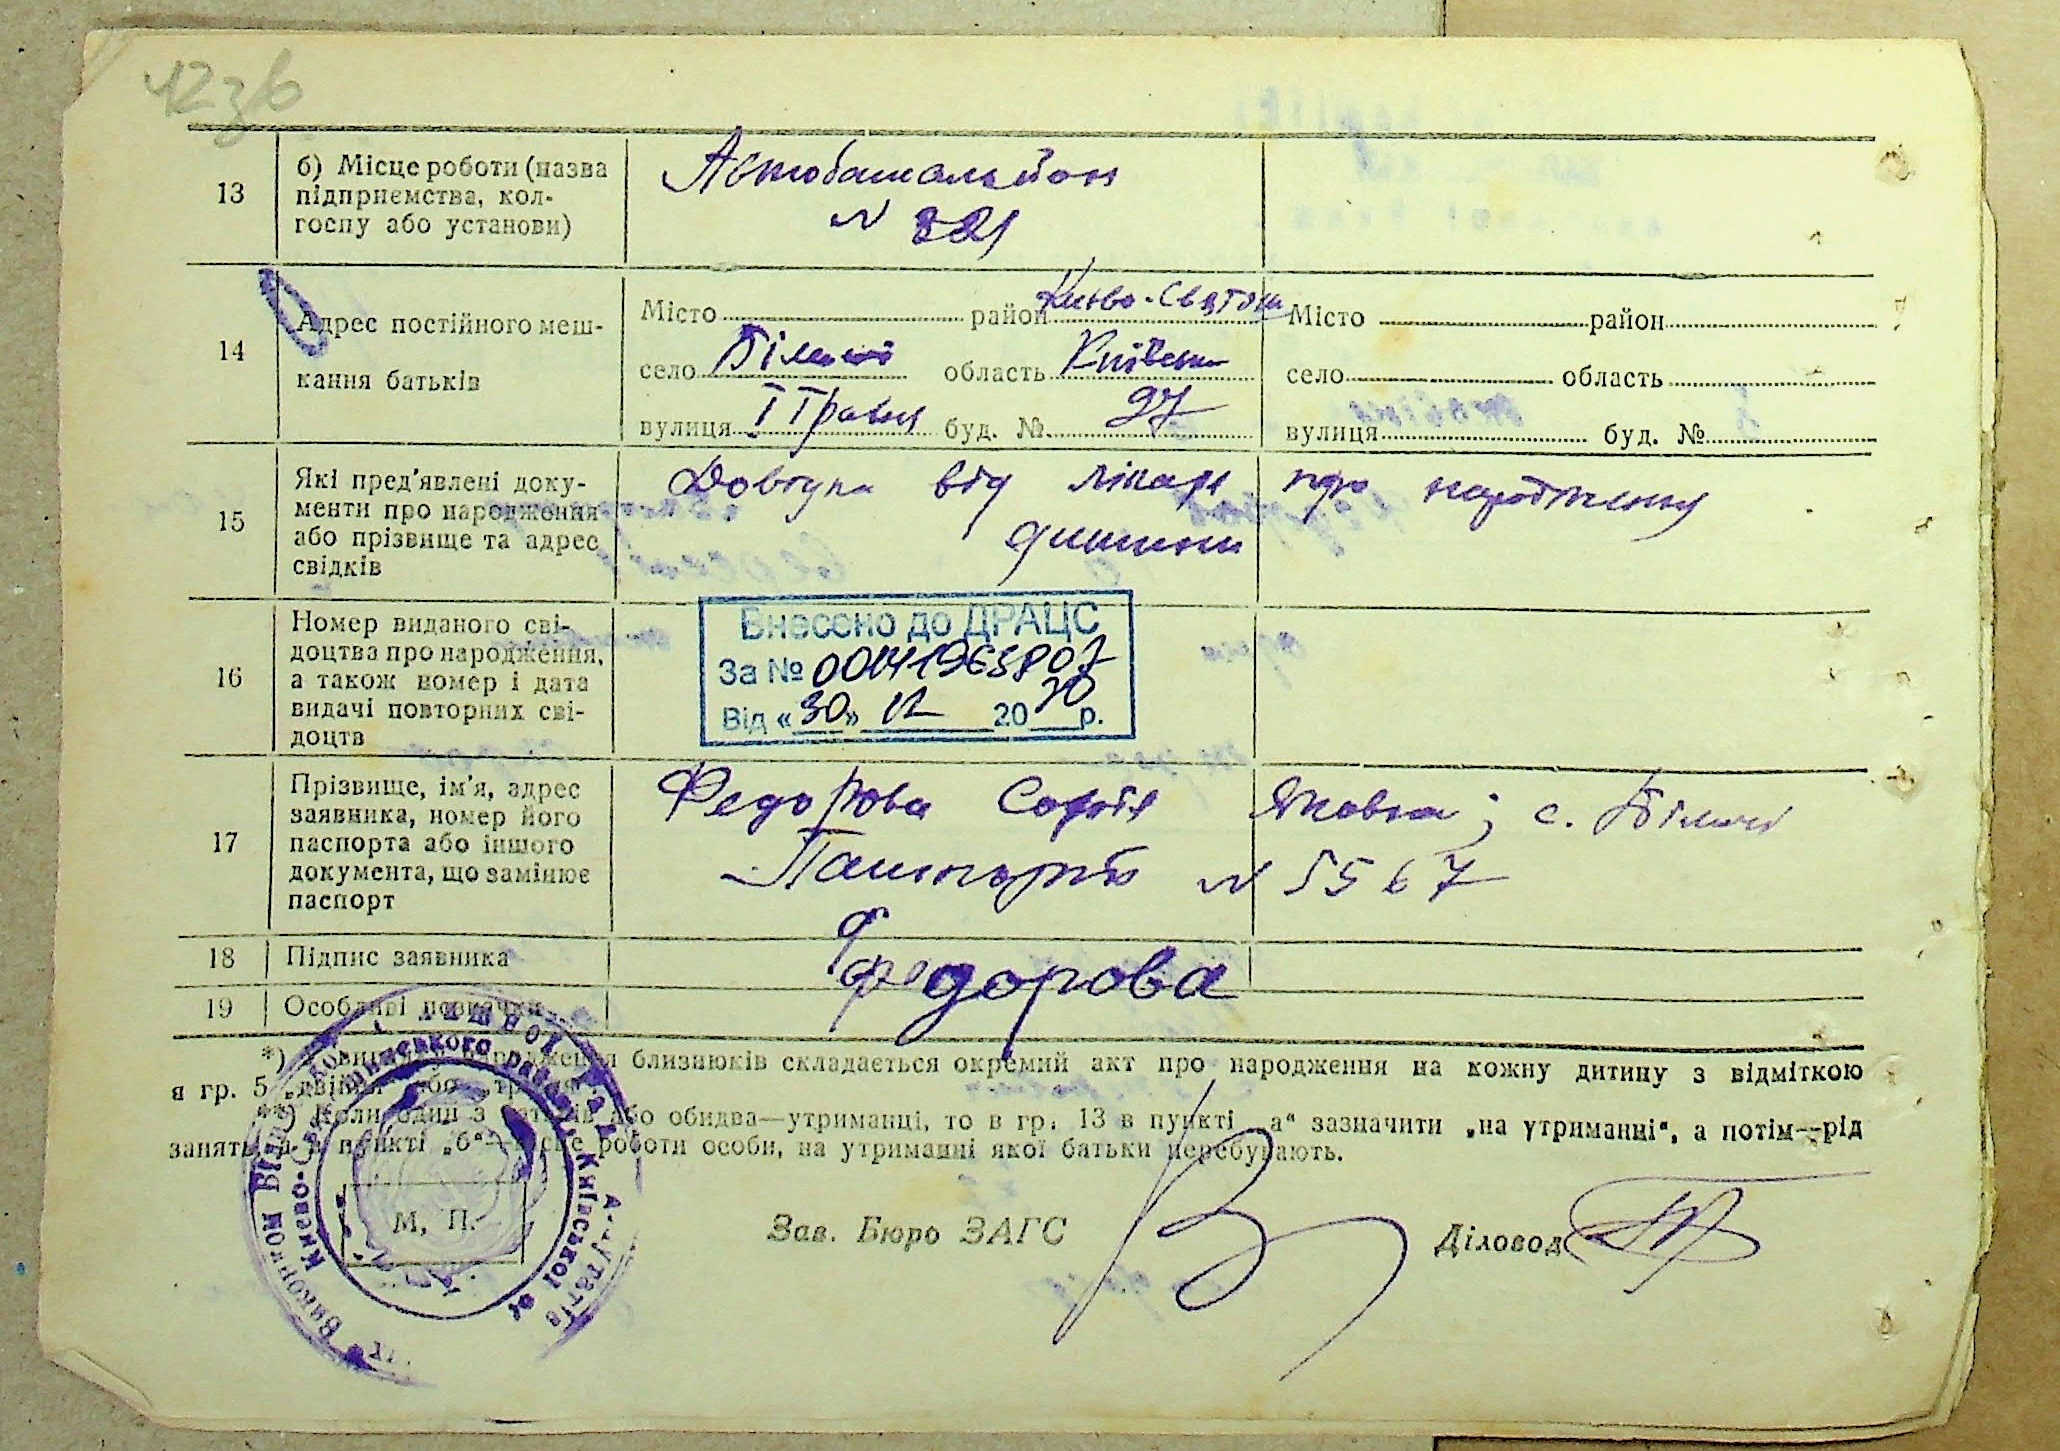 42зв
13
б) Місце роботи (назва
підприємства, кол-
госпу або установи)
Автобатальйон
N 321
14
Адрес постійного меш-
кання батьків
Місто район Києво-Святош
село Біличі область Київськ
вулиця 1 Травня буд. № 27
Місто район
село область
вулиця буд. №
15
Які пред'явлені доку-
менти про народження
або прізвище та адрес
свідків
Довідка від лікаря про народження
дитини
16
Номер виданого сві-
доцтва про народження,
а також номер і дата
видачі повторних сві-
доцтв
Внесено до ДРАЦС
За № 00141963807
Від «30» 12 2020 р.
17
Прізвище, ім'я, адрес
заявника, номер його
паспорта або іншого
документа, що замінює
паспорт
Федорова Софія Яковна; с. Біличі
Пашпорт N 5567
18
Підпис заявника
Федорова
19
Особливі позначки
*) народження близнюків складається окремий акт про народження на кожну дитину з відміткою
в гр. 5 „двійня" або „трійня"
**) Коли один з батьків або обидва—утриманці, то в гр. 13 в пункті „а" зазначити „на утриманні", а потім—рід
занять, а в пункті „б"—місце роботи особи, на утриманні якої батьки перебувають.
М. П.
Зав. Бюро ЗАГС
Діловод
Києво-Святошинського району, Київської